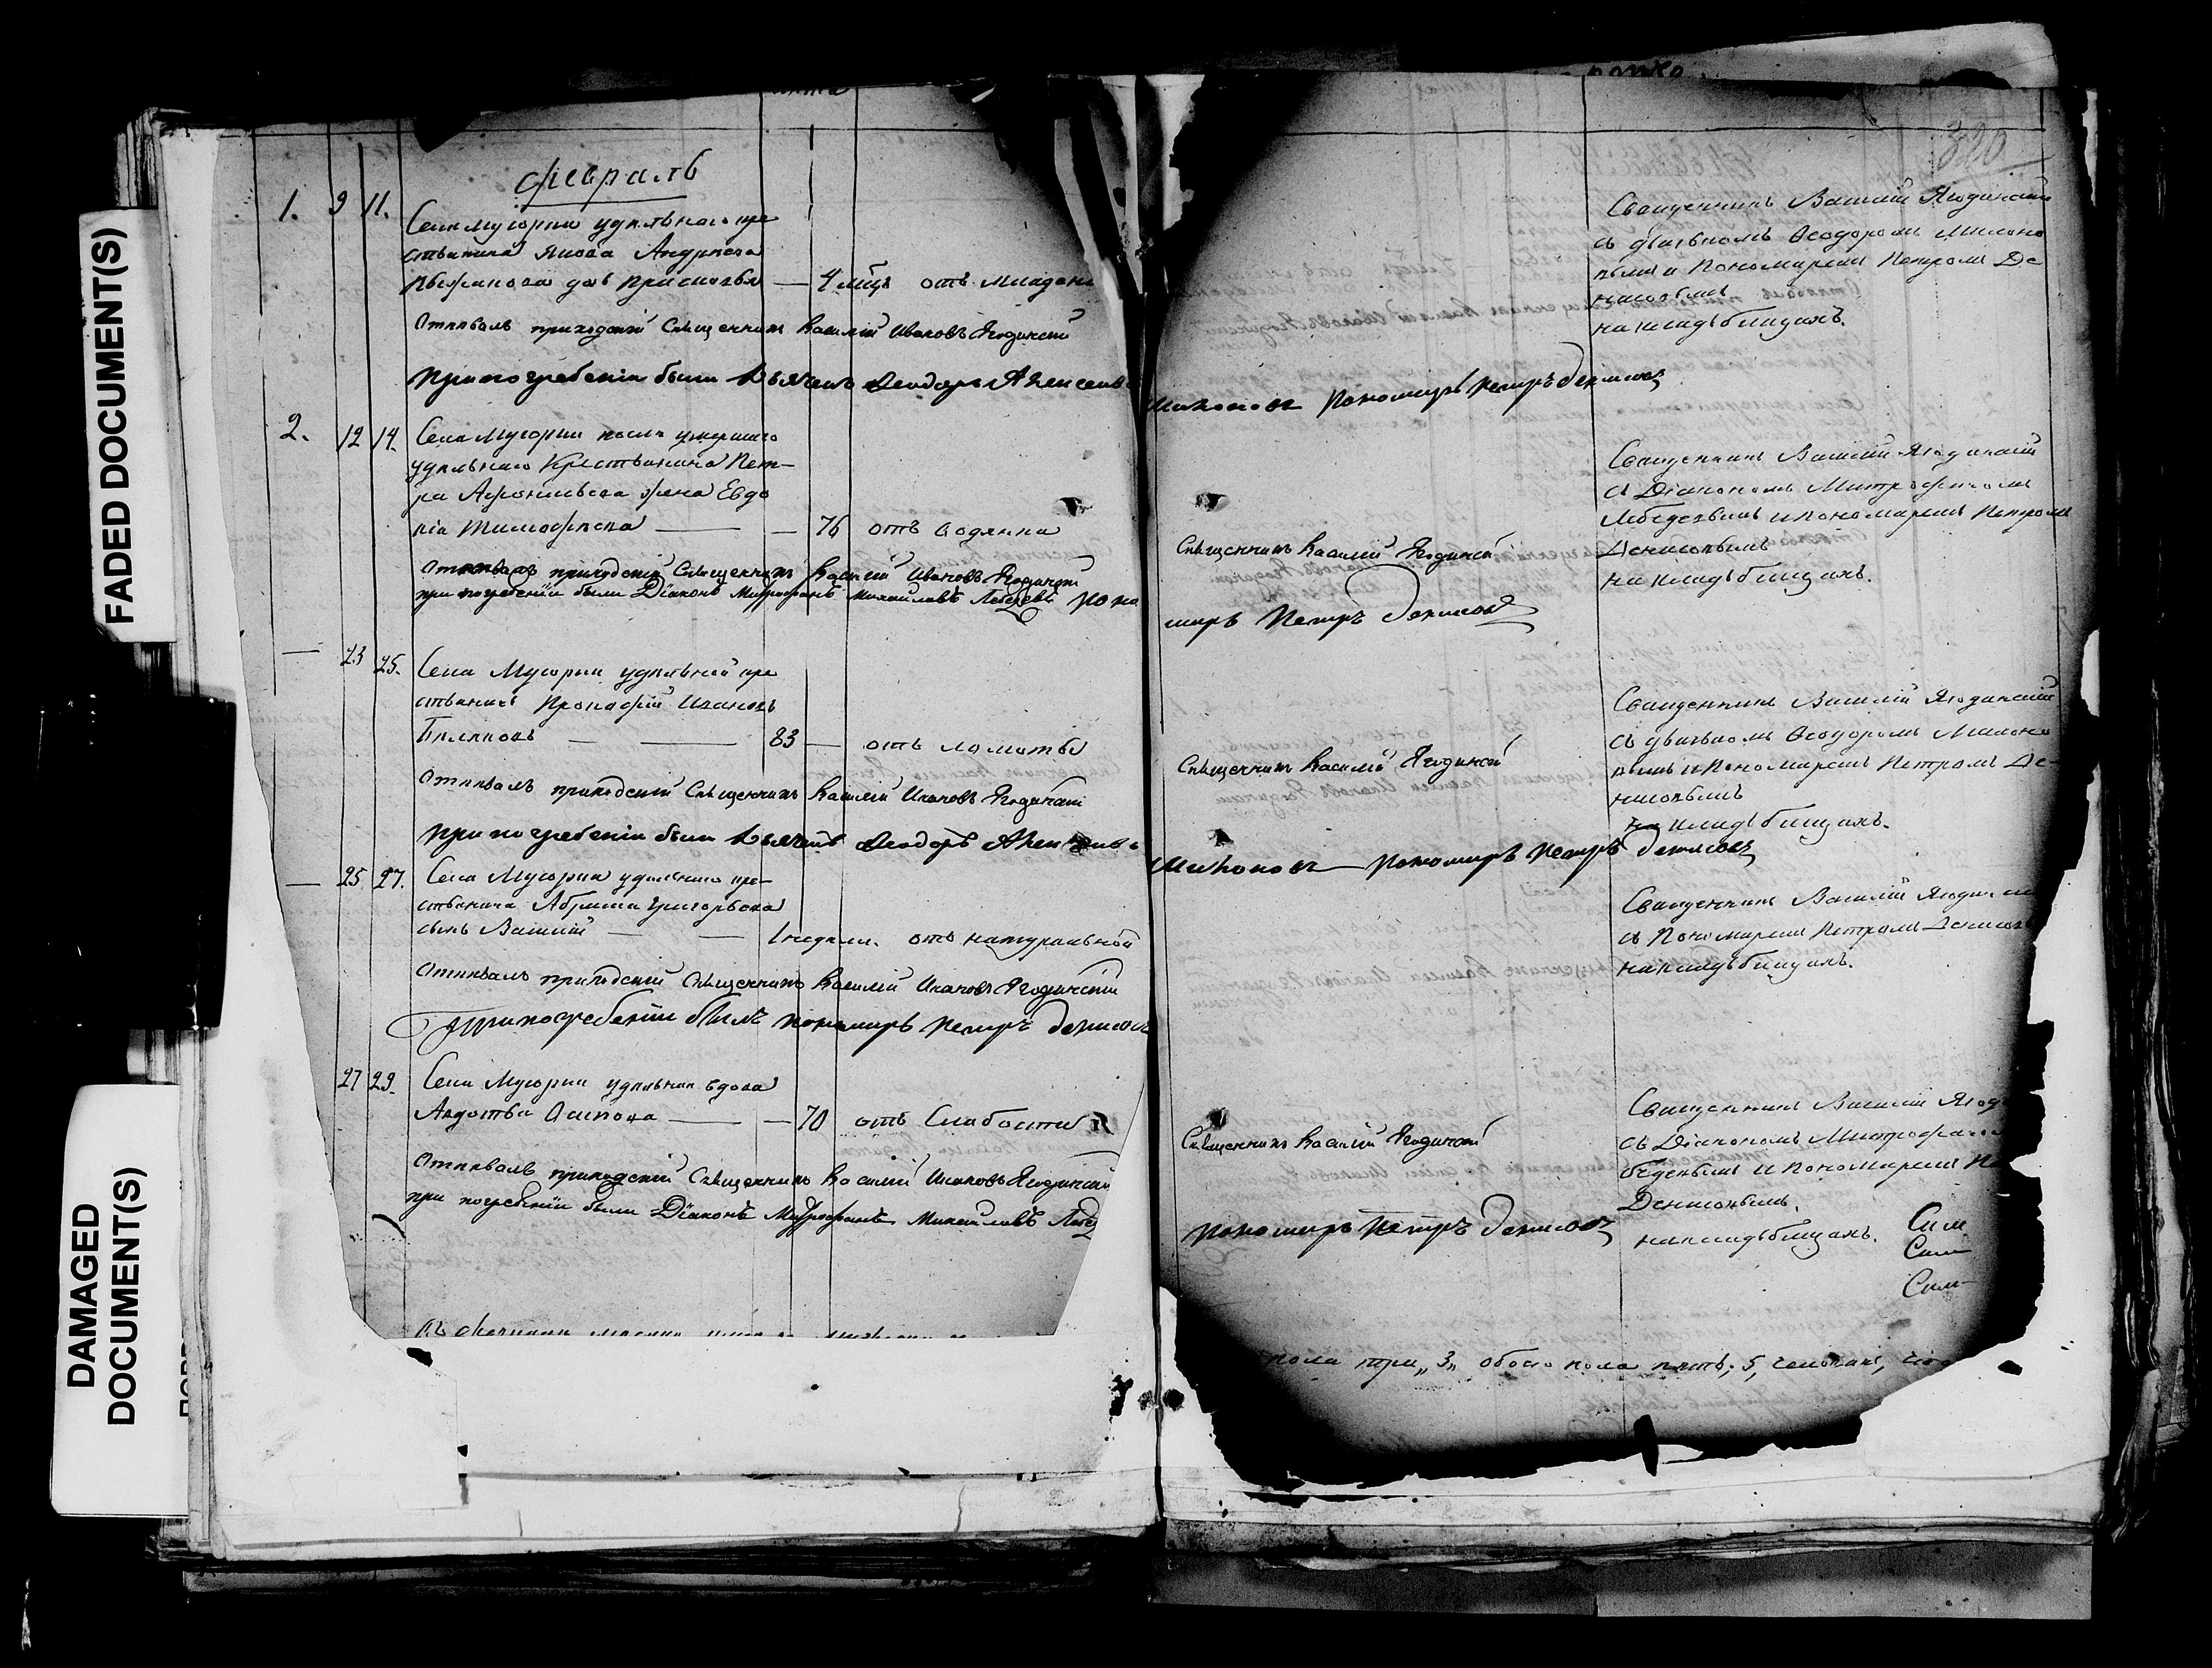 FADED DOCUMENT(S)
DAMAGED DOCUMENT(S)
320
февраль
1. 9 11.
Села Мусорки удѣльнаго кре
стьянина Якова Андреева
дочь
4 мѣс. отъ младен
Отпѣвалъ приходскій Священникъ Василій Ивановъ Ягодинскій
При погребеніи были Дьячекъ Феодоръ Алексеевъ
Пономарь Петръ Денисовъ
Священникъ Василій Ягодинскій
съ дьячкомъ Ѳеодоромъ
и Пономаремъ Петромъ Де
нисовымъ
на кладбищахъ.
2. 12 14.
Села Мусорки послѣ умершаго
удѣльнаго Крестьянина Пет-
ра Афонасьева жена Евдо
кія Тимофѣева — 76 отъ водянки
Отпѣвалъ приходскій Священникъ Василій Ивановъ Ягодинскій
при погребеніи были Діаконъ Митрофанъ Михайловъ Лебедевъ поно
Священникъ Василій Ягодинскій
марь Петръ Денисовъ
Священникъ Василій Ягодинскій
съ Діакономъ Митрофаномъ
Лебедевымъ и пономаремъ Петромъ
Денисовымъ
на кладбищахъ.
— 23 25.
Села Мусорки удѣльной кре
стьянинъ Прокофій Ивановъ
Бѣляковъ — 83 — отъ ломоты
Отпѣвалъ приходскій Священникъ Василій Ивановъ Ягодинскій
При погребеніи были Дьячекъ Феодоръ Алексеевъ
Священникъ Василій Ягодинской
Пономарь Петръ Денисовъ
Священникъ Василій Ягодинскій
съ дьячкомъ Ѳеодоромъ
и Пономаремъ Петромъ Де-
нисовымъ
на кладбищахъ.
— 25 27.
Села Мусорки удѣльнаго кре-
стьянина Абрама Григорьева
сынъ Василій — 1 недели. отъ натуральной
Отпѣвалъ приходскій Священникъ Василій Ивановъ Ягодинскій
При погребеніи былъ пономарь Петръ Денисовъ
Священникъ Василій Ягодинскі
съ Пономаремъ Петромъ Денисов
на кладбищахъ.
27 29.
Села Мусорки удѣльная вдова
Авдотья Осипова — 70 отъ Слабости
Отпѣвалъ приходскій Священникъ Василій Ивановъ Ягодинскій
при погребеніи были Діаконъ Митрофанъ Михайловъ Лебед
Священникъ Василій Ягодинской
Пономарь Петръ Денисовъ
Священникъ Василій Ягод
съ Діакономъ Митрофано
бедевымъ и пономаремъ Пе
Денисовымъ.
на кладбищахъ.
Сим
Сим
Сим
пола три „3„ обоего пола пять, 5, человѣкъ,